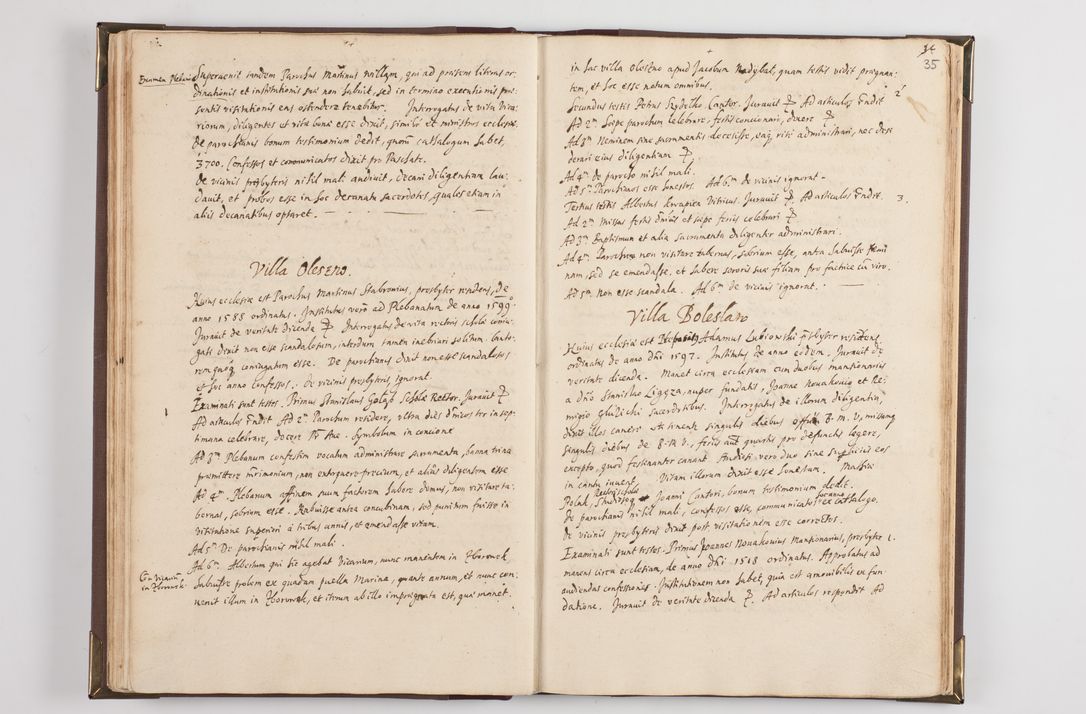 Examen Plebani
Superuenit tandem Parochus Martinus millam, qui ad praesens literas or,
dinationis et institutionis suae non habuit, sed in termino executionis prae,
sentis visitationis eas ostendere tenebitur. Interrogatus de vita vica,
riorum, diligentes et vitae bonae esse dixit, similiter et ministros ecclesiae.
De parochianis bonum testimonium dedit, quorum cathalogum habet,
3700. Confessos et communicatos dixit pro Paschate.
De vicinis presbyteris nihil mali audiuit, Decani diligentiam lau,
dauit, et probos esse in hoc decanatu sacerdotes, quales etiam in
aliis decanatibus optaret.
Villa Oleszno.
Huius ecclesiae est Parochus Martinus Stabrouius, presbyter residens, de
anno 1588 ordinatus. Institutus vero ad Plebanatum de anno 1599
Jurauit de veritate dicenda Interrogatus de vita rectoris scholae coniu,
gati dixit non esse scandalosum, interdum tamen inebriari solitum. Canto,
remque coniugatum esse. De parochianis dixit non esse scandalosos
et hoc anno confessos. De vicinis presbyteris ignorat.
Examinati sunt testes. Primus Stanislaus Scholae Rector. Jurauit
Ad articulos rndit Ad 2m Parochum residere, ultra dies dnicos ter in sep,
timana celebrare, docere Pr Aue. Symbolum in concione
Ad 3m Plebanum confestim vocatum administrare sacramenta, banna trina
praemittere mrimonium, non extorquere precium, et alias diligentem esse
Ad 4m Plebanum affinem suum factorem habere domus, non visitare ta,
bernas, sobrium esse. Habuisse antea concubinam, sed punitum fuisse in
visitatione superiori a tribus annis, et emendasse vitam.
Ad 5m De parochianis nihil mali.
Ad 6m. Albertum qui hic agebat Vicarium, nunc manentem in
habuisse prolem ex quadam puella Marina, quarto annum, et nunc con,
uenit illum in et iterum ab illo impraegnata est, quae manet
34
35
in hac villa Oleszno apud Jacobum Nadybal, quam testis vidit praegnan,
tem, et hoc esse notum omnibus.
2
Secundus testis Petrus Cantor. Jurauit Ad articulos rndit
Ad 2m. Saepe parochum celebrare, festis concionari, docere
Ad 3m Neminem sine sacramentis decessisse, eaque rite administrari, nec desi,
derari eius diligentiam
Ad 4m de parocho nihil mali.
Ad 5m. Parochianos esse honestos. Ad 6m de vicinis ignorat.
3.
Tertius testis Albertus Vitricus. Jurauit Ad articulos rndit.
Ad 2m Missas festis dnicis et saepe feriis celebrari
Ad 3m. Baptismum et alia sacramenta diligenter administrari.
Ad 4m. Parochum non visitare tabernas, sobrium esse, antea habuisse femi
nam, sed se emendasse. et habere sororis suae filiam pro factrice cum viro.
Ad 5m non esse scandala. Ad 6m de vicinis ignorat.
Villa Boleslaw
Huius ecclesiae est Adamus Lubiowski presbyter residens
ordinatus de anno dni 1597. Institutus de anno eodem, Jurauit de
veritate dicenda. Manet circa ecclesiam cum duobus mansionariis
a dno Stanislao Ligęza, nuper fundatis, Joanne Nouakouiq et Re,
migio sacerdotibus. Interrogatus de illorum diligentia,
dixit illos canere attinente singulis diebus offm B. M. V, missamque
singulis diebus de B. M. V., feriis aut quartis pro defunctis legere,
excepto, quod festinanter canant. Auditi vero duo sine eos
in cantu iuuent. Vitam illorum dixit esse honestam. Mathiae
Rectori scholae
Joanni Cantori, bonum testimonium dedit.
De parochianis nihil mali, confessos esse, communicatos ex cathalogo.
De vicinis presbyteris dixit post visitationem esse correctos.
1.
Examinati sunt testes. Primus Joannes Nouakouius Mansionarius, presbyter
manens circa ecclesiam, de anno dni 1518 ordinatus. Approbatus ad
audiendas confessiones. Institutionem non habet, quia est amouibilis ex fun,
datione. Jurauit de veritate dicenda Ad articulos respondit Ad